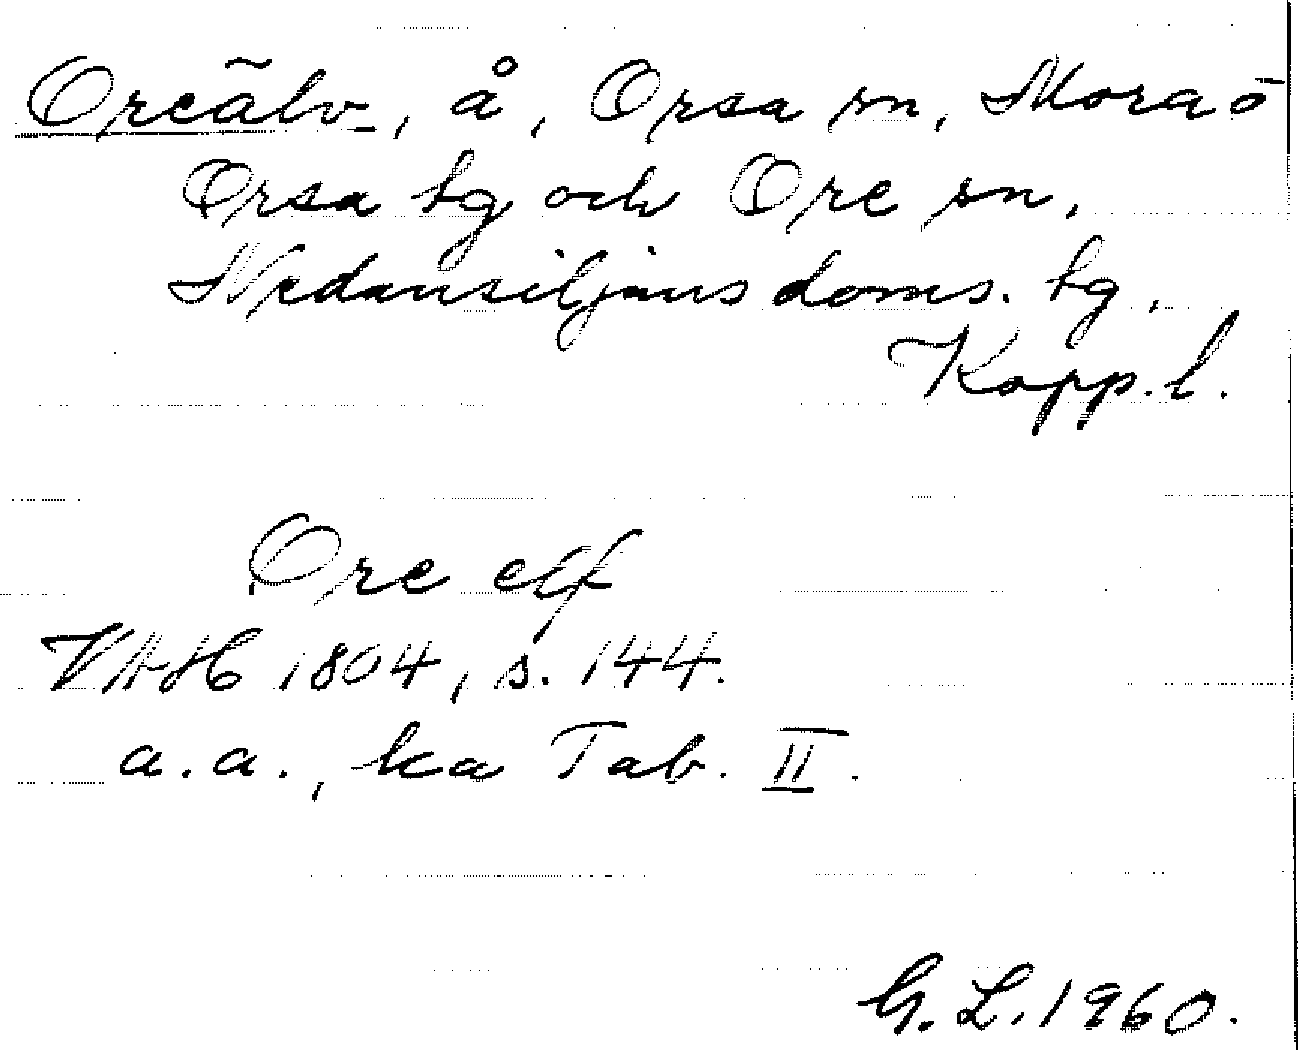 Oreälv, å, Orsa sn, Mora o
Orsa tg och Ore sn,
Nedansiljans doms. tg,
Kopp. l.
Ore elf
VAH 1804, s. 144.
a.a., ka Tab. II.
G. L. 1960.